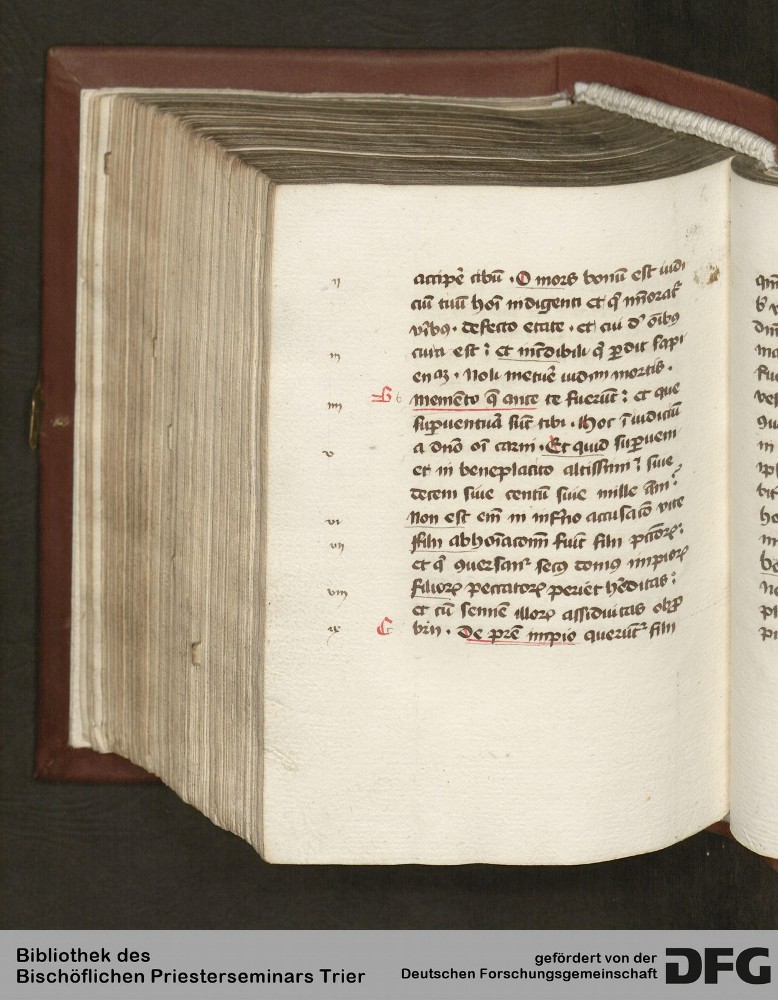 ıı
accipe᷑ cibū . O mors bonū est iudi
ciū tuū hoı̄ indigenti et q̄ mı̄orat᷑
vı̄bꝫ . defecto etate . et cui d' oı̄bꝫ
ııı
cura est : et īcredibili q̄ ꝑdit sapi
enciā . Noli metue᷑ iudiciū mortis .
ıııı
Memēto q̄ ante te fuerūt : et que
suꝑuentura sūt tibi . Hoc iudiciū
a dn̄o oı̄ carni . Et quid suꝑueni
v
et in beneplacito altissimi : siue
decem siue centū siue mille āni :
vı
Non est em̄ in inferno accusaco vite
vıı
Filij abhoı̄acom̄ fiūt filij pctoꝝ :
et q̄ ꝯuersant᷑ secꝰ domꝰ impioꝝ
vııı
Filioꝝ peccatoꝝ periet hēditas :
et cū semine illoꝝ assiduitas obꝓ
ıx
brij . De pr̄e impio querūt᷑ filij
Bibliothek des
Bischöflichen Priesterseminars Trier
gefördert von der
Deutschen Forschungsgemeinschaft
DFG